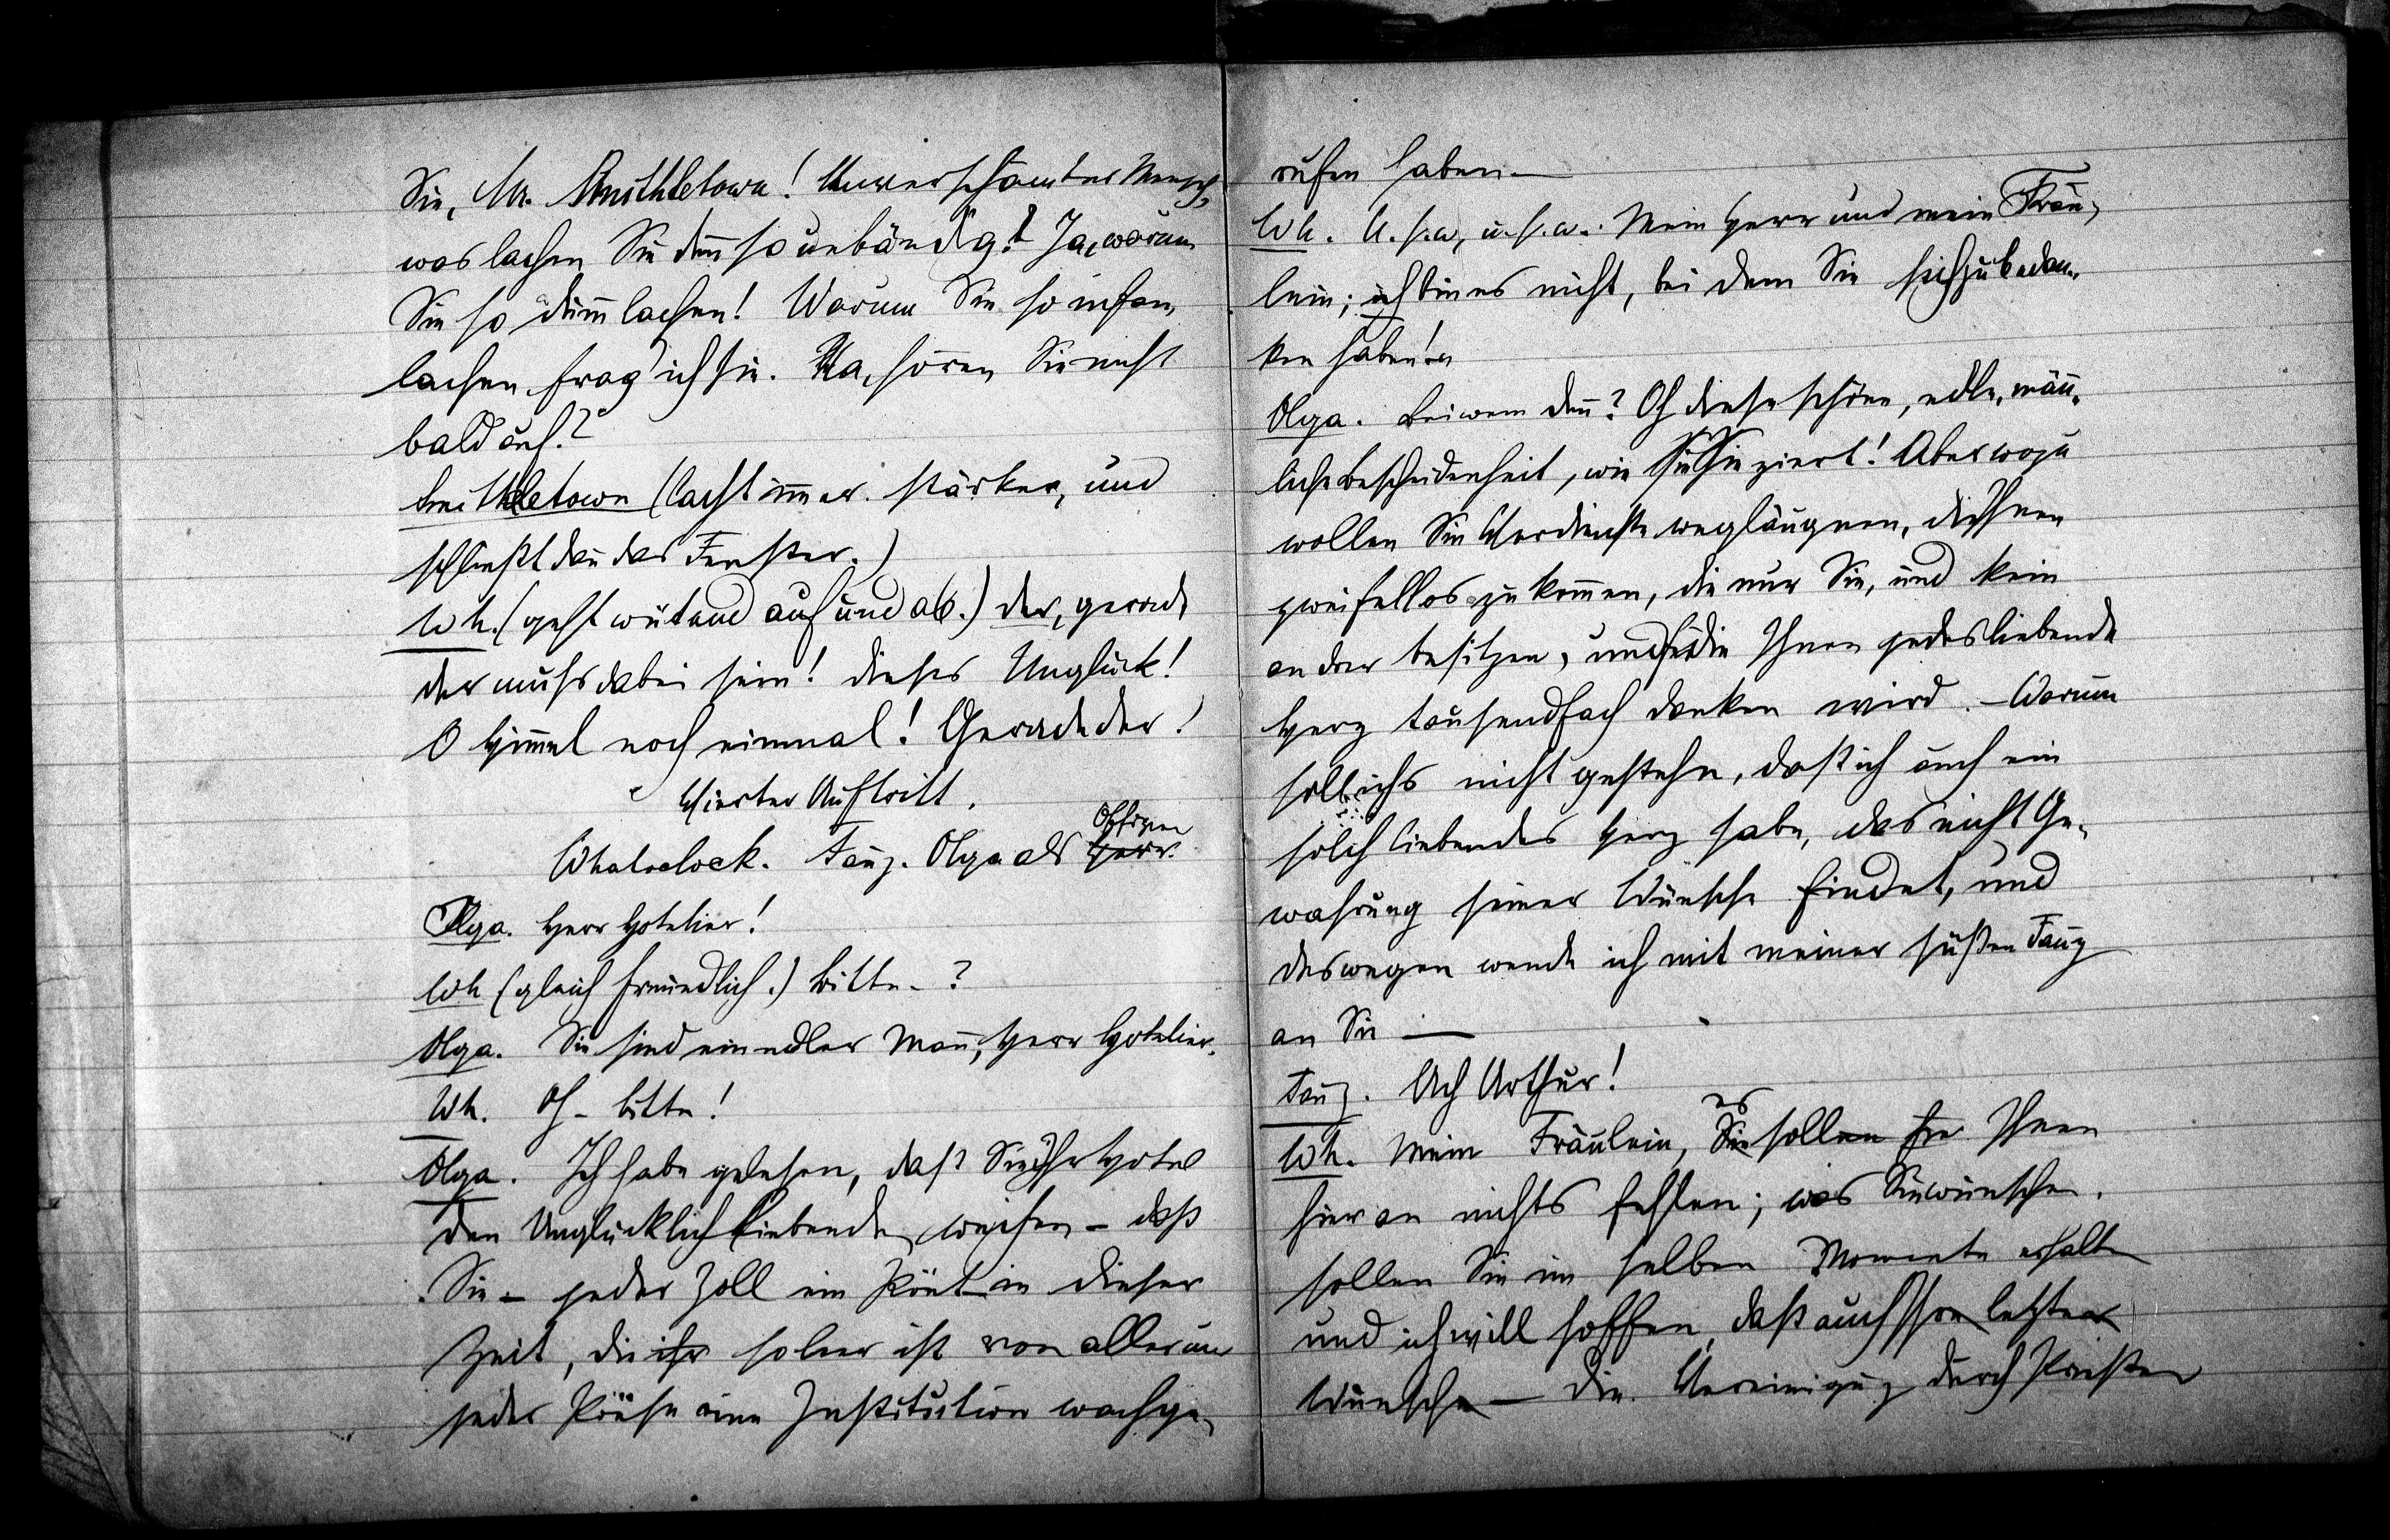 Sie, Mr. Smithletown! Unverschämter Mensch,
was lachen Sie den̄ so unbändig? Ja, warum
Sie so dum̄ lachen! Warum Sie so infam
lachen, frag' ich Sie. Na, hören Sie nicht
bald auf?
Smithletown (lacht im̄er stärker, und
schließt dan̄ das Fenster.)
Wh. (geht wütend auf und ab.) Der, gerade
der muß dabei sein! dieses Unglück!
O Him̄el noch einmal! Gerade der!
Vierter Auftritt.
Whatoclock. Fanz. Olga als Herr. Offizier
Olga. Herr Hotelier!
Wh (gleich freundlich.) Bitte - ?
Olga. Sie sind ein edler Man̄, Herr Hotelier.
Wh. Oh - bitte!
Olga. Ich habe gelesen, daß Sie Ihr Hotel
den Unglücklich Liebenden weihen - daß
Sie - jeder Zoll ein in dieser
Zeit, die ihr so leer ist von aller und
jeder eine Institution wachge-
rufen haben —
Wh. U. s. w., u. s. w.. Mein Herr und mein Fräu-
lein; ich bin es nicht, bei dem Sie sich zu bedan-
ken haben!
Olga. Bei wem den̄? Oh diese schöne, edle, män̄-
liche Bescheidenheit, wie sie Sie ziert! Aber wozu
wollen Sie Verdienste wegläugnen, die Ihnen
zweifellos zukom̄en, die nur Sie, und kein
andrer besitzen, und für die Ihnen jedes liebende
Herz tausendfach danken wird. - Warum
soll ichs nicht gestehn, daß ich auch ein
solch liebendes Herz habe, das nicht Ge-
währung seiner Wünsche findet, und
deswegen wende ich mit meiner süßen Fanz
an Sie —
Fanz. Ach Arthur!
Wh. Mein Fräulein, Sie es sollen Ihnen
hier an nichts fehlen; was Sie wünschen,
sollen Sie im selben Momente erhalten
und ich will hoffen, daß auch Ihre letzten
Wünsche — die Vereinigung durch Priester